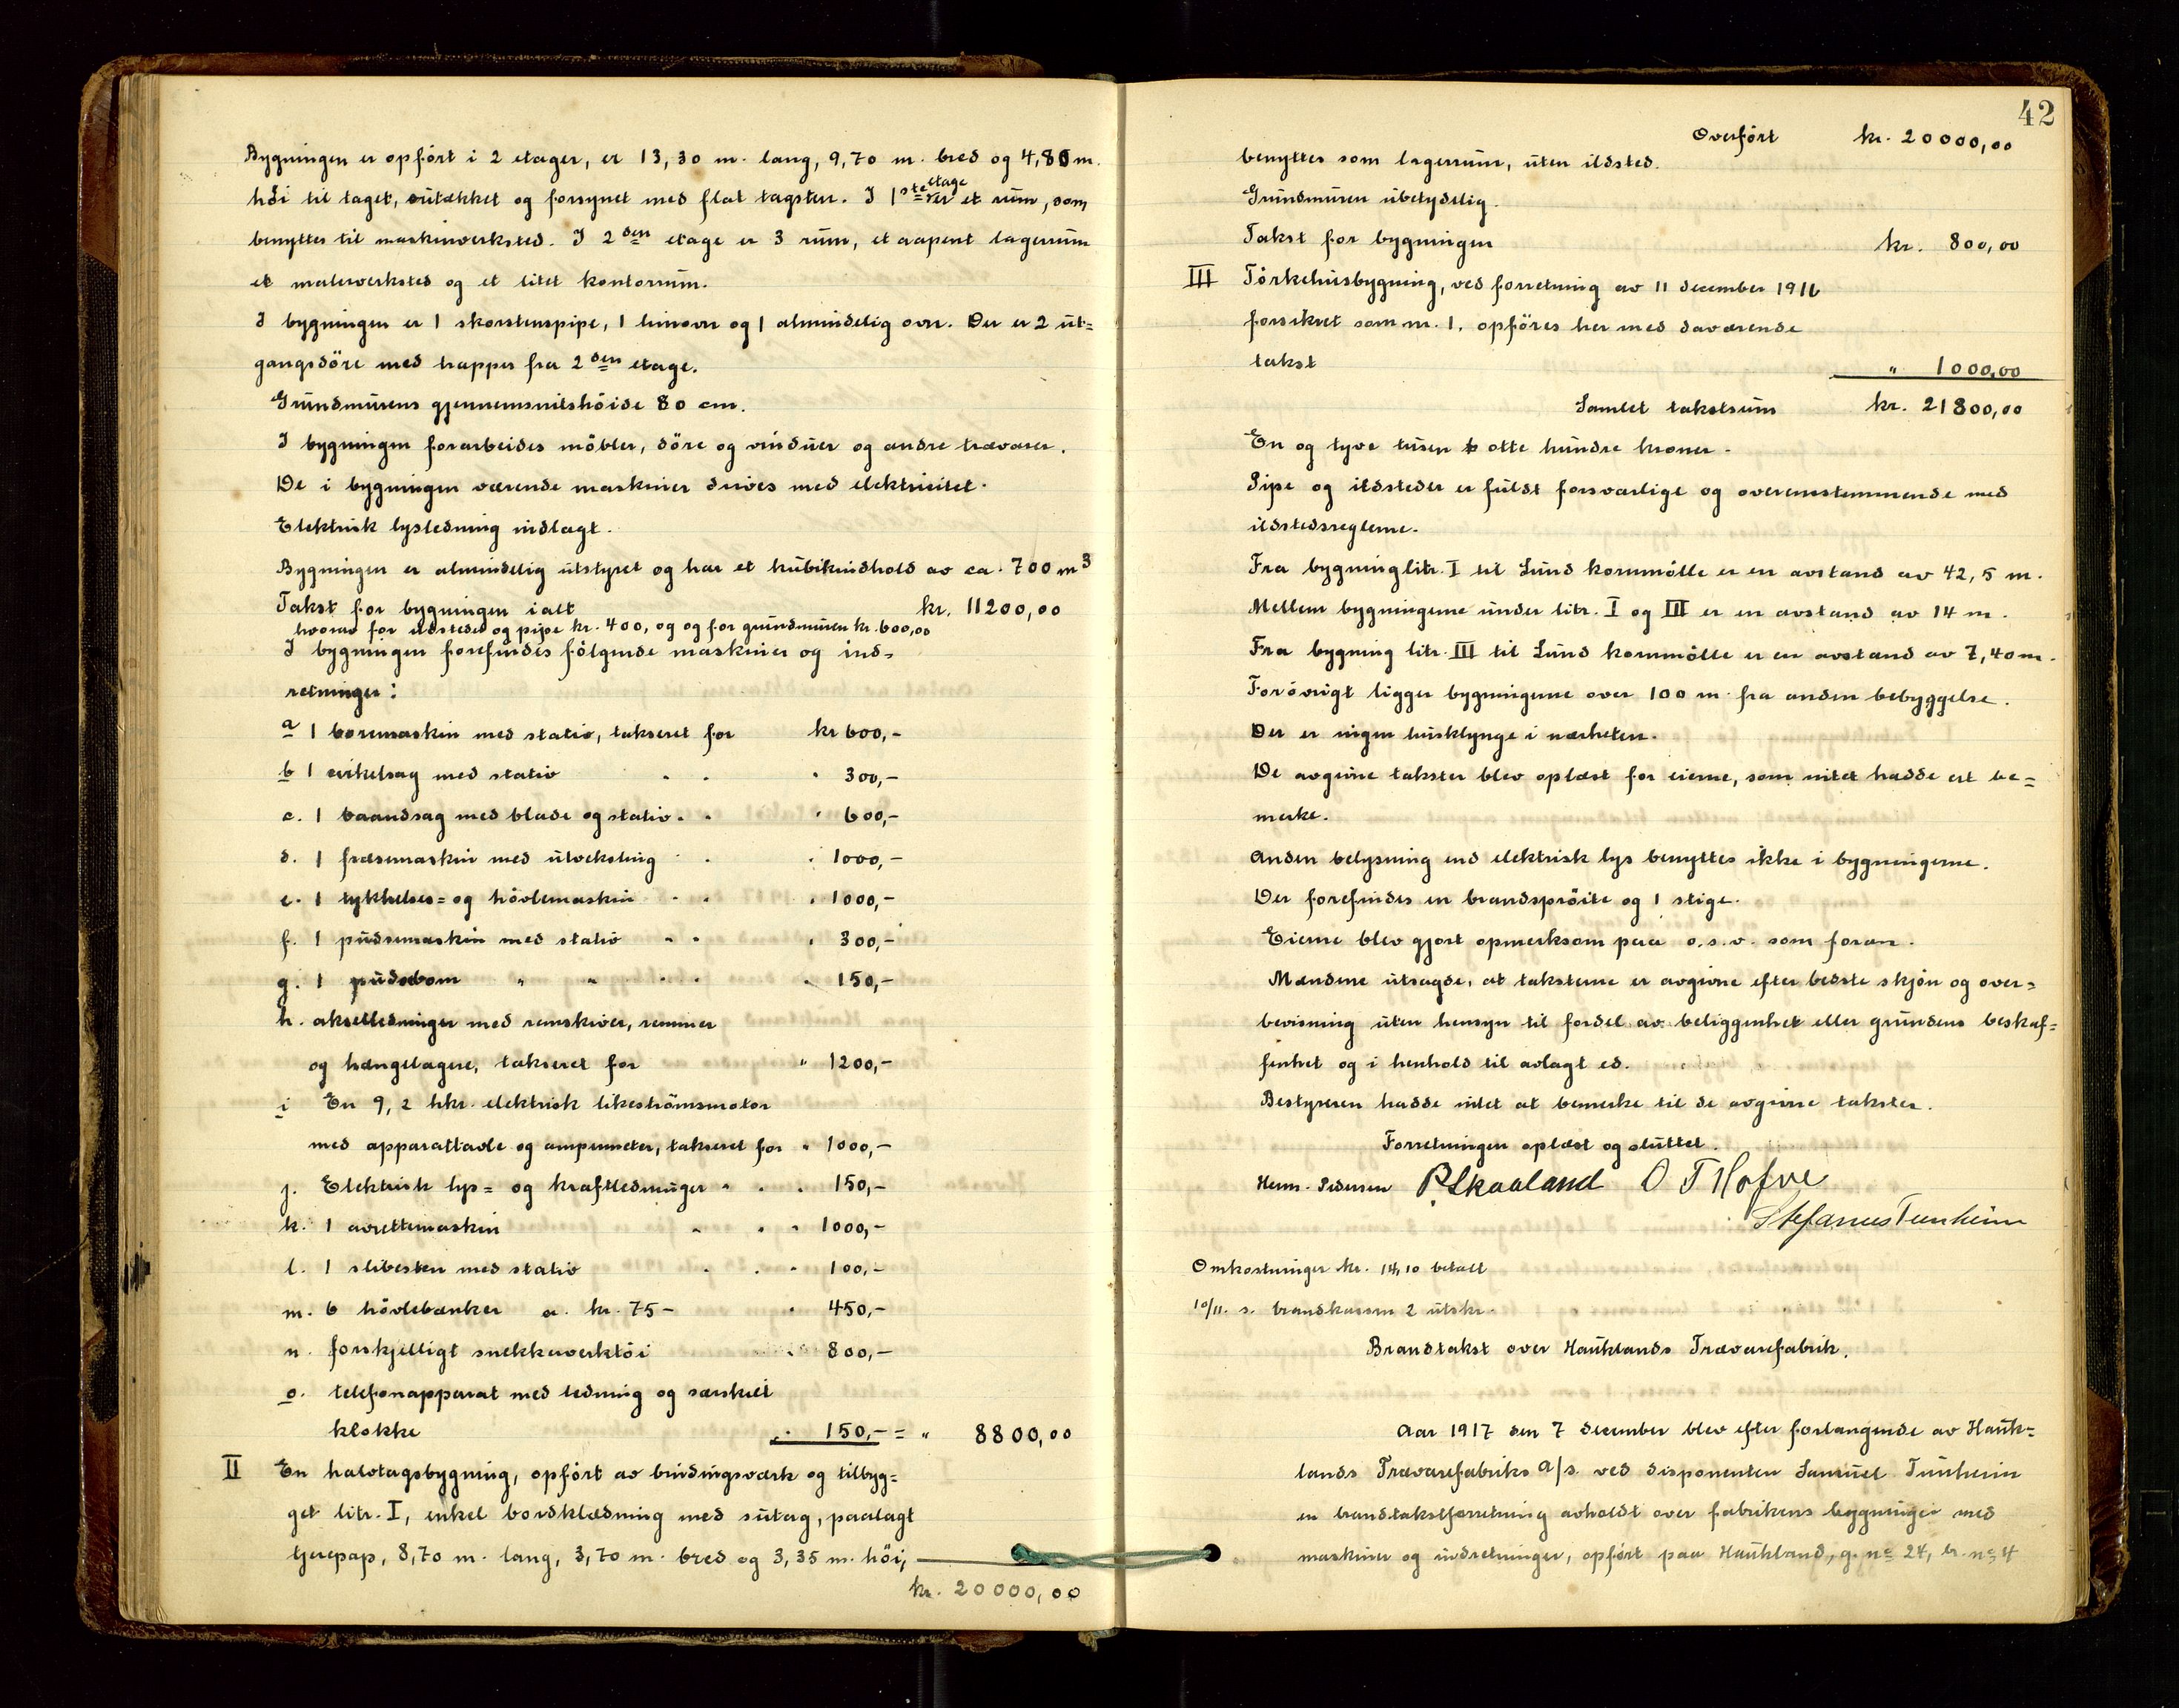 Bygningen er opført i 2 etager, er 13,30 m. lang, 9,70 m. bred og 4,80 m.
høi til taget, sutækket og forsynet med flat tagsten. I 1ste etage er et rum, som
benyttes til maskinverksted. I 2den etage er 3 rum, et aapent lagerrum
et malerverksted og et litet kontorrum.
I bygningen er 1 skorstenspipe, 1 limovn og 1 almindelig ovn. Der er 2 ut=
gangsdöre med trapper fra 2den etage.
Grundmurens gjennemsnitshöide 80 cm.
I bygningen forarbeides möbler, döre og vinduer og andre trævarer.
De i bygningen værende maskiner drives med elektricitet.
Elektrisk lysledning indlagt.
Bygningen er almindelig utstyret og har et kubikindhold av ca. 700 m3
Takst for bygningen ialt kr. 11200,00
hvorav for ildsteder og pipe kr. 400, og og for grundmuren kr. 600,00
I bygningen forefindes fölgende maskiner og ind=
retninger:
a 1 boremaskin med stativ, takseret for kr 600,-
b 1 cirkelsag med stativ " " " 300,-
c. 1 baandsag med blade og stativ " " " 600,-
d. 1 fræsemaskin med utveksling " " " 1000,-
e. 1 tykkelses= og hövlemaskin " " " 1000,-
f. 1 pudsemaskin med stativ " " " 300,-
g. 1 pudsebom " " " " " 150,-
h. akselledninger med remskiver, remmer
og hængelagere, takseret for " 1200,-
i En 9,2 hkr. elektrisk likeströmsmotor
med apparattavle og ampermeter, takseret for " 1000,-
j. Elektrisk lys= og kraftledninger " " " 150,-
k. 1 avrettemaskin " " " 1000,-
l. 1 slibesten med stativ " " " 100,-
m. 6 hövlebænker a. kr. 75- " 450,-
n. forskjelligt snekkerverktöi " 800,-
o. telefonapparat med ledning og særskilt
klokke " 150,- = " 8800,00
II En halvtagsbygning, opfört av bindingsværk og tilbyg=
get litr. I, enkel bordklædning med sutag, paalagt
tjærepap, 8,70 m. lang, 3,70 m. bred og 3,35 m. höi,
kr. 20000,00
42
Overfört kr. 20000,00
benyttes som lagerrum, uten ildsted.
Grundmuren ubetydelig.
Takst for bygningen kr. 800,00
III Törkehusbygning, ved forretning av 11 december 1916
forsikret som nr. 1, opföres her med daværende
takst " 1000,00
Samlet takstsum kr. 21800,00
En og tyve tusen otte hundre kroner.
Pipe og ildsteder er fuldt forsvarlige og overensstemmende med
ildstedsreglerne.
Fra bygning litr. I til Lund kornmölle er en avstand av 42,5 m.
Mellem bygningerne under litr. I og III er en avstand av 14 m.
Fra bygning litr. III til Lund kornmölle er en avstand av 7,40 m.
Forövrigt ligger bygningerne over 100 m. fra anden bebyggelse.
Der er ingen husklynge i nærheten.
De avgivne takster blev oplæst for eierne, som intet hadde at be=
merke.
Anden belysning end elektrisk lys benyttes ikke i bygningerne.
Der forefindes en brandspröite og 1 stige.
Eierne blev gjort opmerksom paa o.s.v. som foran.
Mændene utsagde, at taksterne er avgivne efter bedste skjön og over=
bevisning uten hensyn til fordel av beliggenhet eller grundens beskaf=
fenhet og i henhold til avlagt ed.
Bestyreren hadde intet at bemerke til de avgivne takster.
Forretningen oplæst og sluttet.
Herm. Pedersen P. Skaaland O T Hofve
Stefanus Tunheim
Omkostninger kr. 14,10 betalt
10/11. s. brandkassen 2 utskr.
Brandtakst over Hauklands Trævarefabrik.
Aar 1917 den 7 december blev efter forlangende av Hauk=
lands Trævarefabriks A/s. ved disponenten Samuel Tunheim
en brandtakstforretning avholdt over fabrikens bygninger med
maskiner og indretninger, opfört paa Haukland, g. no 24, br. no 4